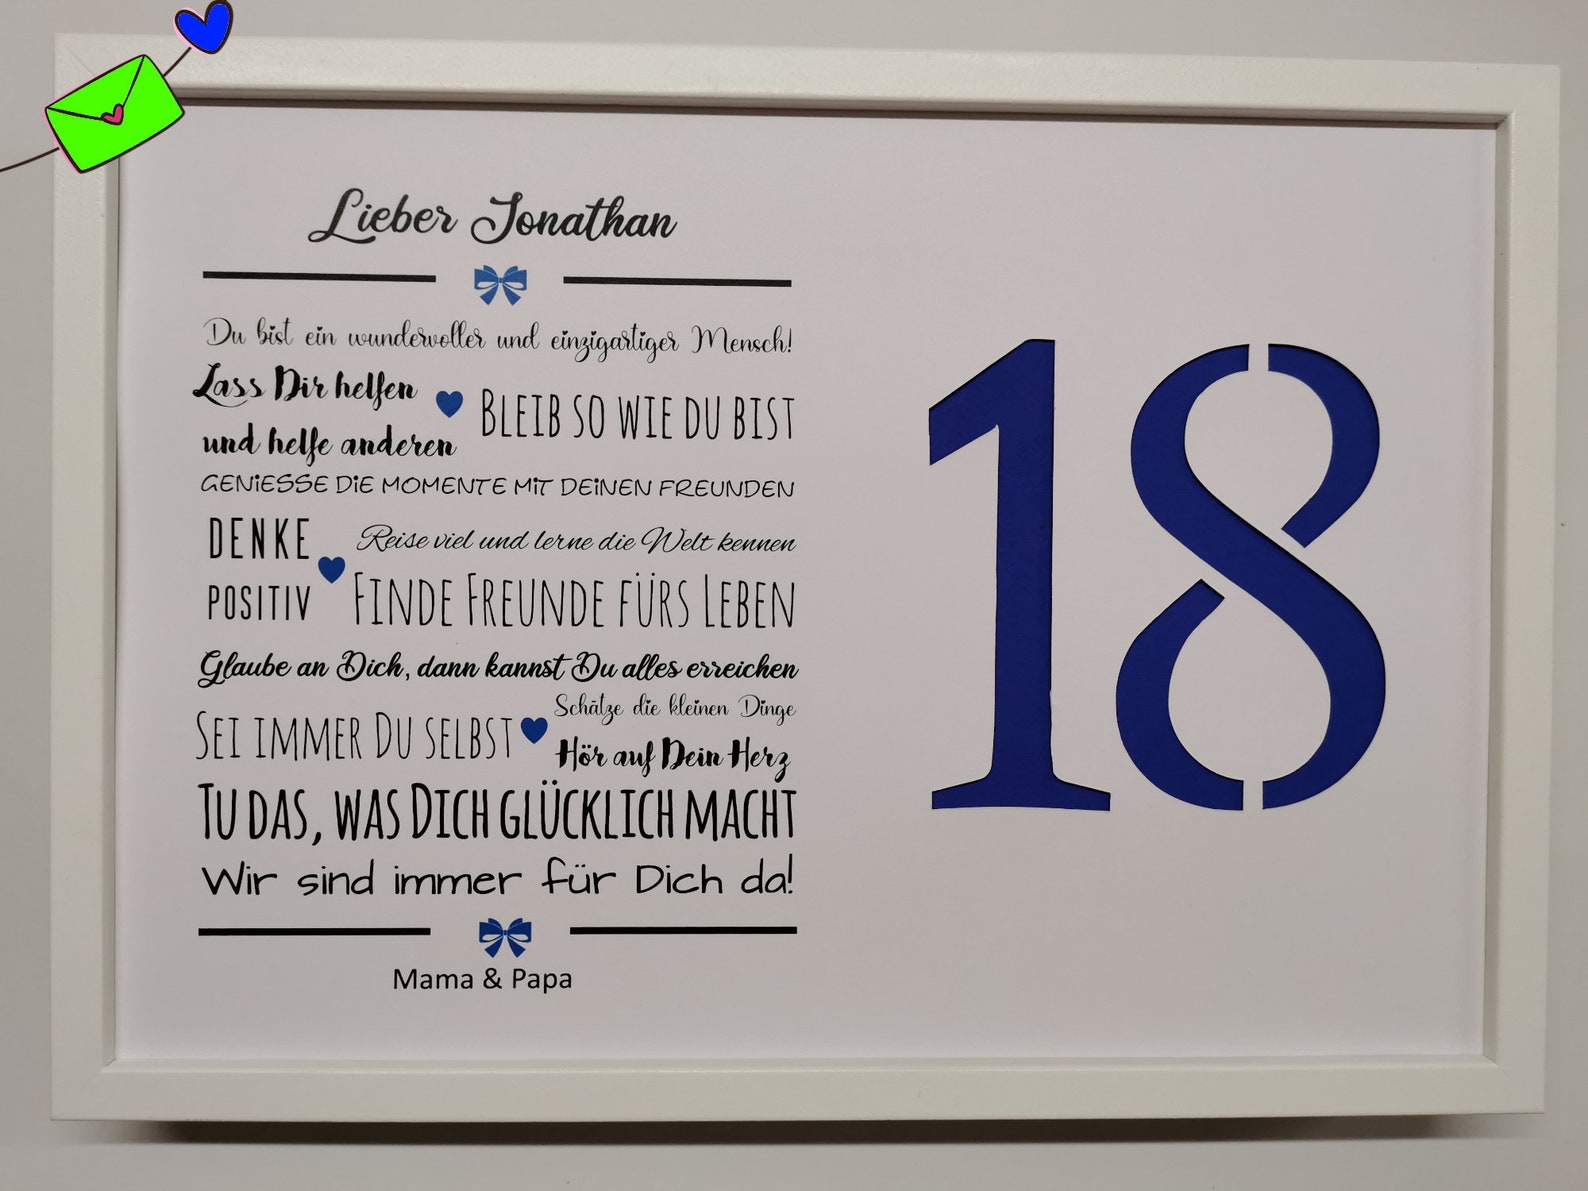 Lieber Jonathan
Du bist ein wundervoller und einzigartiger Mensch!
Lass Dir helfen
und helfe anderen
BLEIB SO WIE DU BIST
GENIESSE DIE MOMENTE MIT DEINEN FREUNDEN
DENKE
POSITIV
Reise viel und lerne die Welt kennen
FINDE FREUNDE FÜRS LEBEN
Glaube an Dich, dann kannst Du alles erreichen
SEI IMMER DU SELBST
Schätze die kleinen Dinge
Hör auf Dein Herz
TU DAS, WAS DICH GLÜCKLICH MACHT
Wir sind immer für Dich da!
Mama & Papa
18